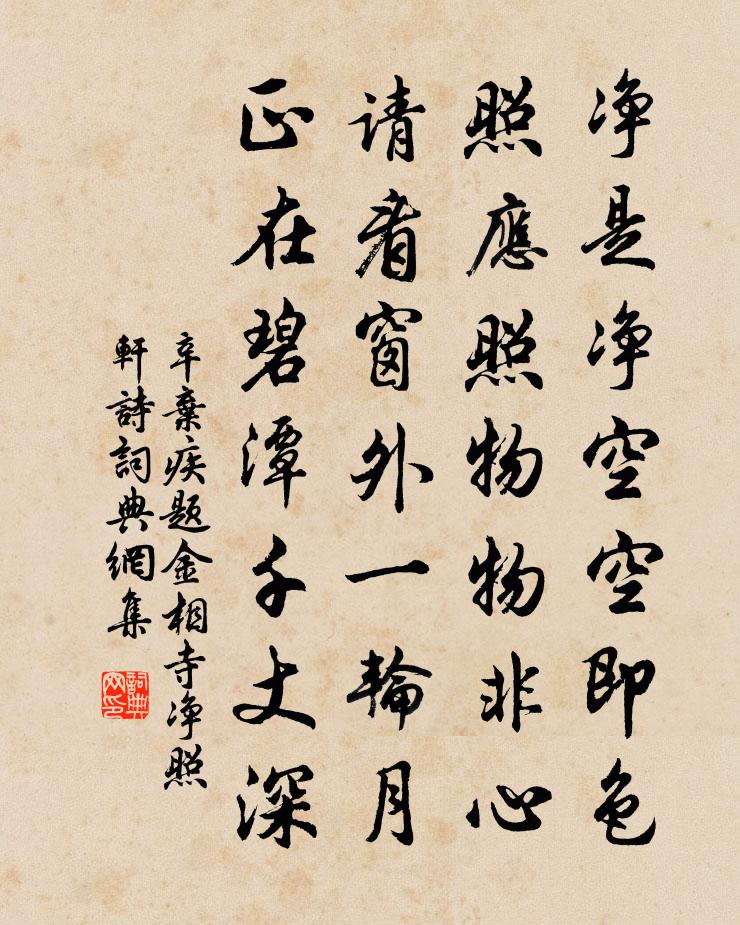 净是净空空即色
照應照物物非心
请看窗外一輪月
正在碧潭千丈深
辛棄疾题金相寺净照
軒詩詞典網集
詞典
网印